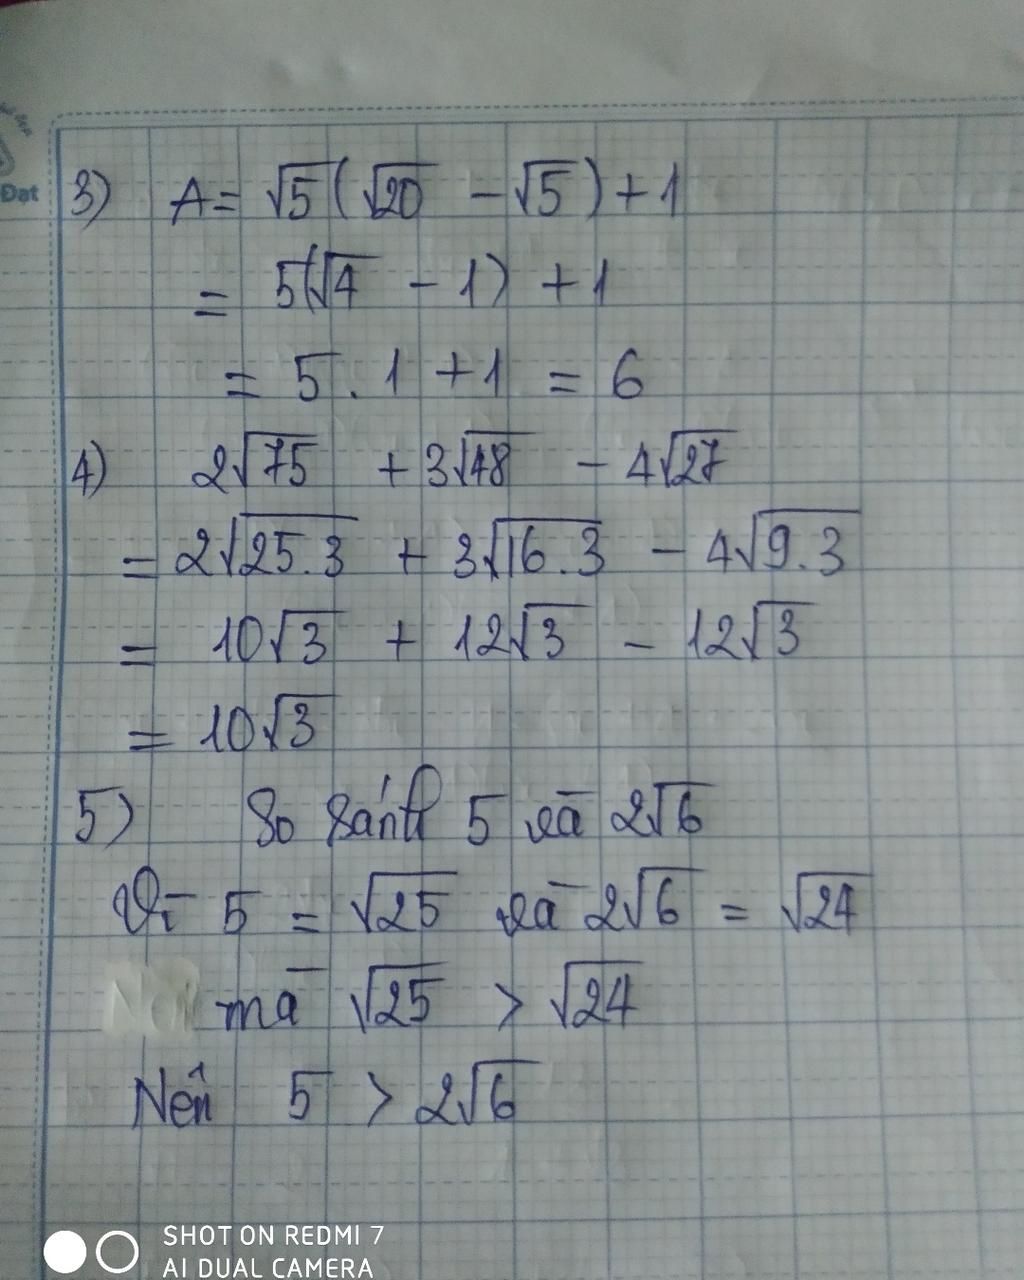 Đạt
3) A = √5(√20 - √5) + 1
= 5(√4 - 1) + 1
= 5 . 1 + 1 = 6
4) 2√75 + 3√48 - 4√27
= 2√25.3 + 3√16.3 - 4√9.3
= 10√3 + 12√3 - 12√3
= 10√3
5) So sánh 5 và 2√6
Vì 5 = √25 và 2√6 = √24
mà √25 > √24
Nên 5 > 2√6
SHOT ON REDMI 7
AI DUAL CAMERA